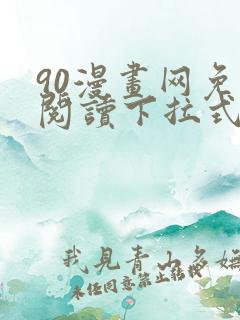 90漫畫网免
閱讀下拉式
我見青山多嫵
未任同意禁止转载